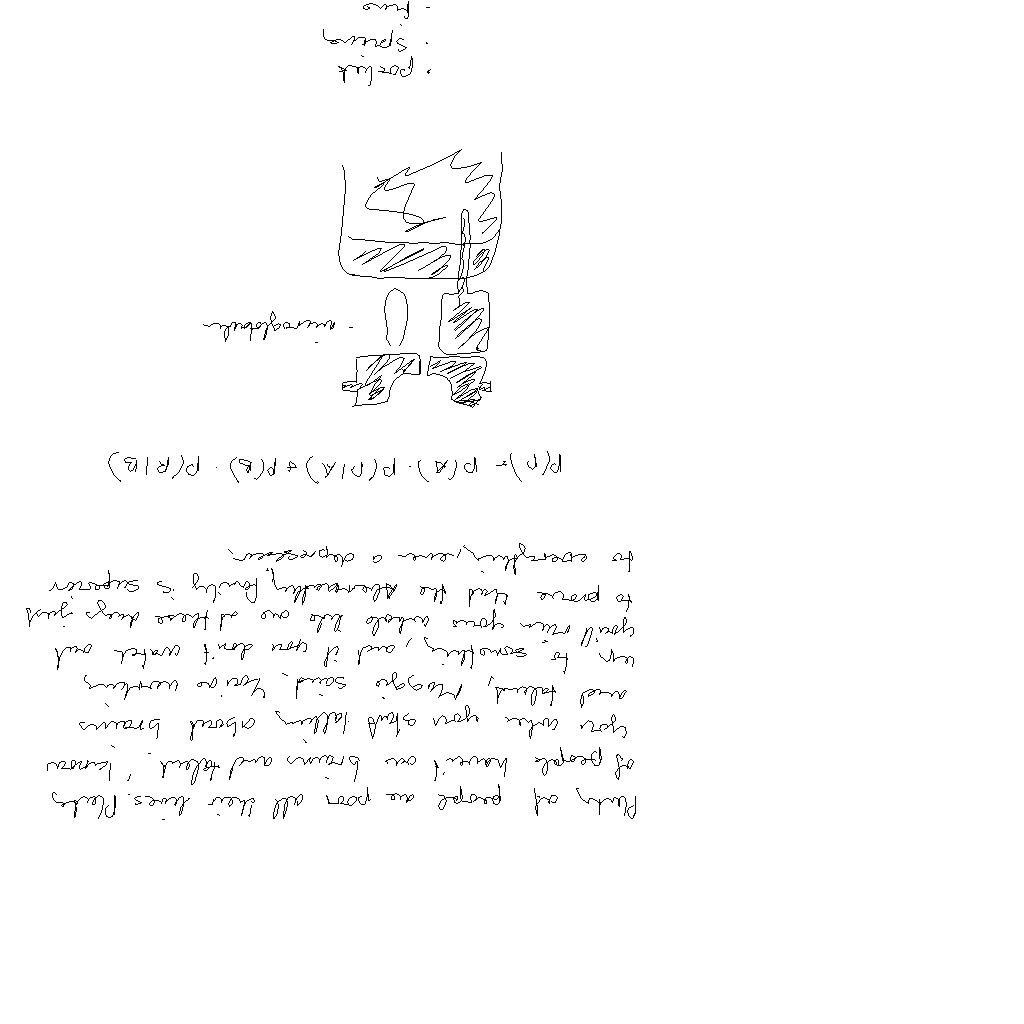 Plenty of people are poor all their lives. Plenty
of people haven't brains and talent. I know
you when you start talking about brains
and talent, Maggie said. You're working
up to something, and if you don't watch out
you'll ruin your whole life one of these days just
to prove that the family is superior
to everything, even a depression.
P(R) = P(A) · P(R|A) + P(B) · P(R|B)
· pocket
· spring